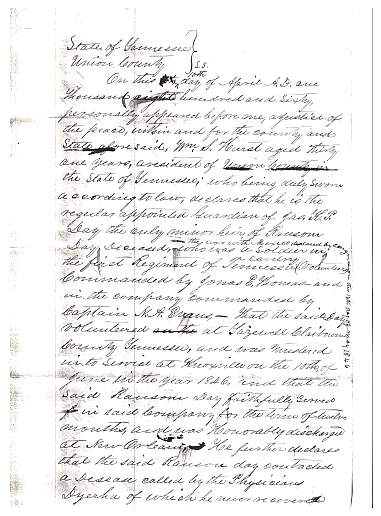 State of Tennessee
Union County } S.S.
On this 10th day of April A.D. one
thousand eight hundred and Sixty,
personally appeared before me, a justice of
the peace, within and for the county and
State afore said, Wm. S. Hurst aged thirty
one years, a resident of Union County in
the State of Tennessee; who being duly sworn
according to law, declares that he is the
regular appointed Guardian of Jas. H. P.
Day the only minor heir of Ransom
Day Deceased, who was a Soldier in
the war with Mexico
the first Regiment of Tennessee Volunteers
or cavalry
Commanded by Jonas E. Thomas and
in the company commanded by
Captain M. A. Evans — That the said Day
volunteered at Tazewell Claiborne
County Tennessee, and was mustered
in to Service at Knoxville on the 10th of
June in the year 1846, and that the
said Ransom Day faithfully served
in said Company for the term of twelve
months, and was Honorably discharged
at New Orleans, He further declares
that the said Ransom day contracted
a Disease called by the Physicians
Dyerhea of which he never recovered